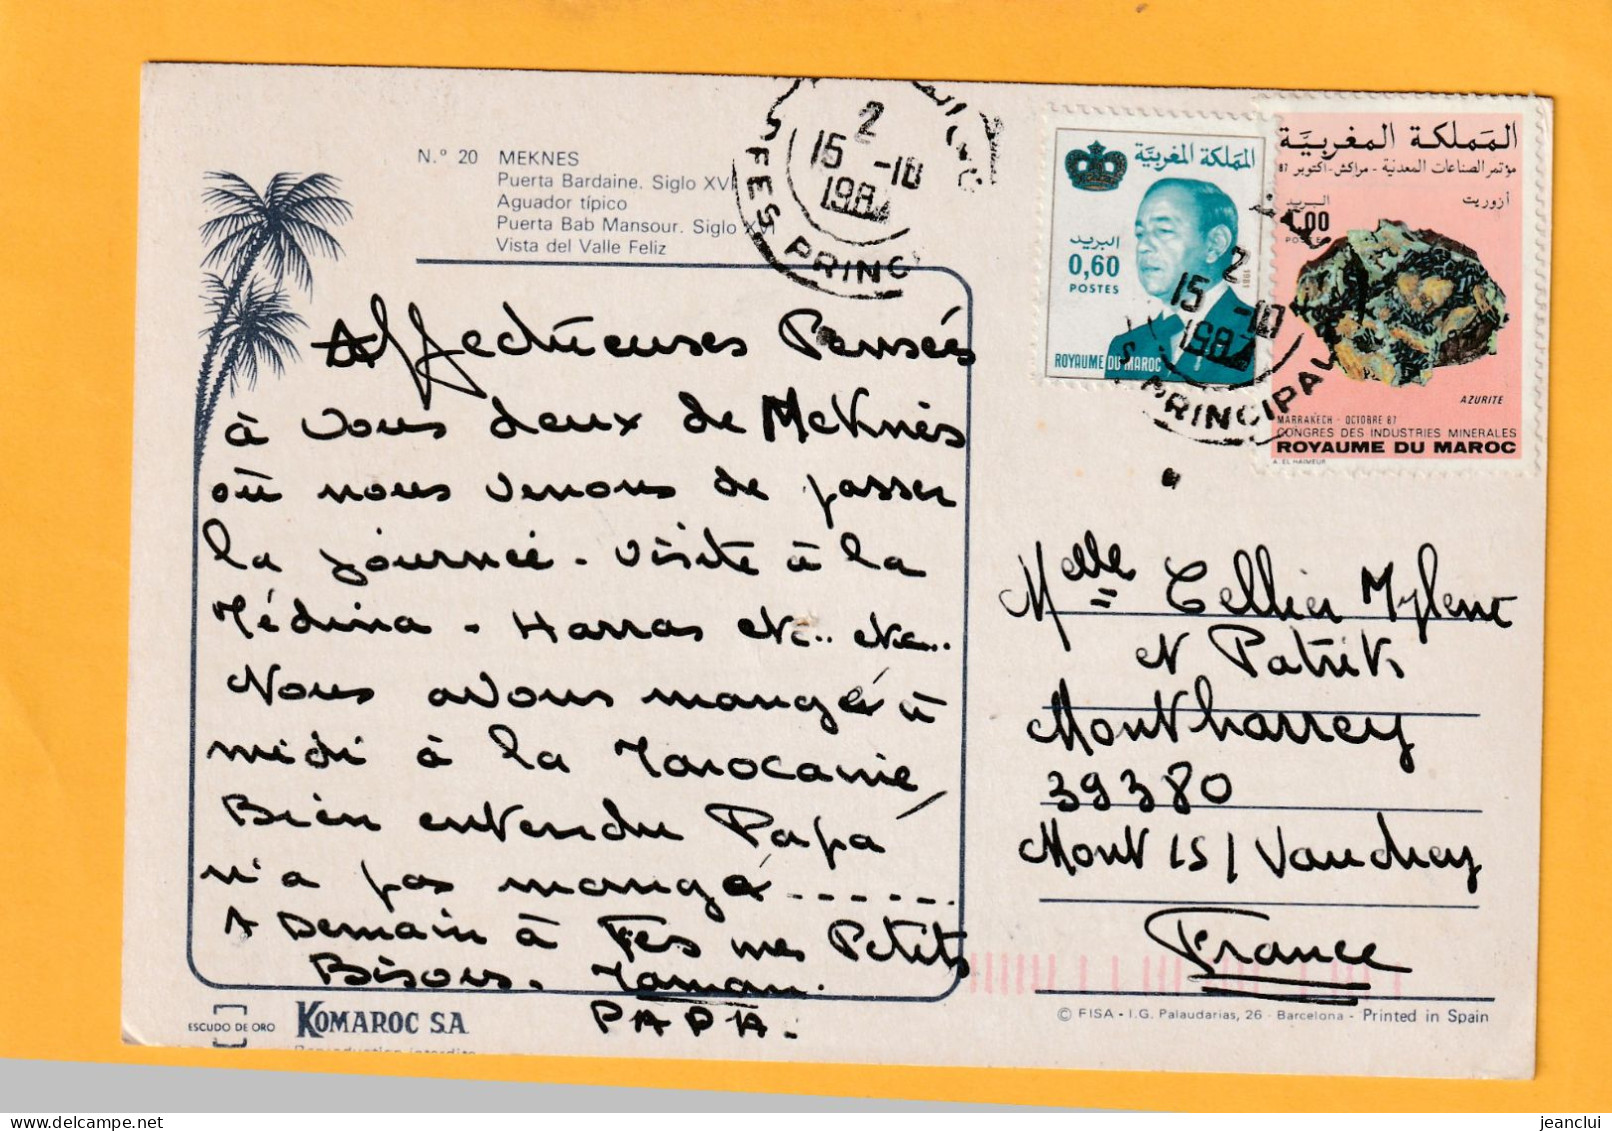 N.º 20 MEKNES
Puerta Bardaine. Siglo XVI
Aguador típico
Puerta Bab Mansour. Siglo XVI
Vista del Valle Feliz
Affectueuses Pensées
à vous deux de Meknès
où nous venons de passer
la journée - visite à la
Médina - Harras etc.. etc..
Nous avons mangé à
midi à la Marocaine,
Bien entendu Papa
n'a pas mangé......
A Demain à Fes mes Petits
Bisous. Maman.
PAPA.
ESCUDO DE ORO KOMAROC S.A.
Reproduction interdite
2
15 -10
1987
FES PRINC
المملكة المغربية
البريد
0,60
POSTES
1981
ROYAUME DU MAROC
2
15 -10
1987
PRINCIPAL
المملكة المغربية
مؤتمر الصناعات المعدنية - مراكش - اكتوبر 87
البريد
أزوريت
1,00
POSTES
AZURITE
MARRAKECH - OCTOBRE 87
CONGRES DES INDUSTRIES MINERALES
ROYAUME DU MAROC
A. EL HAIMEUR
Melle Cellier Mylene
et Patrick
Montbarrey
39380
Mont ls/Vaudrey
France
© FISA - I.G. Palaudarias, 26 - Barcelona - Printed in Spain
jeanclui